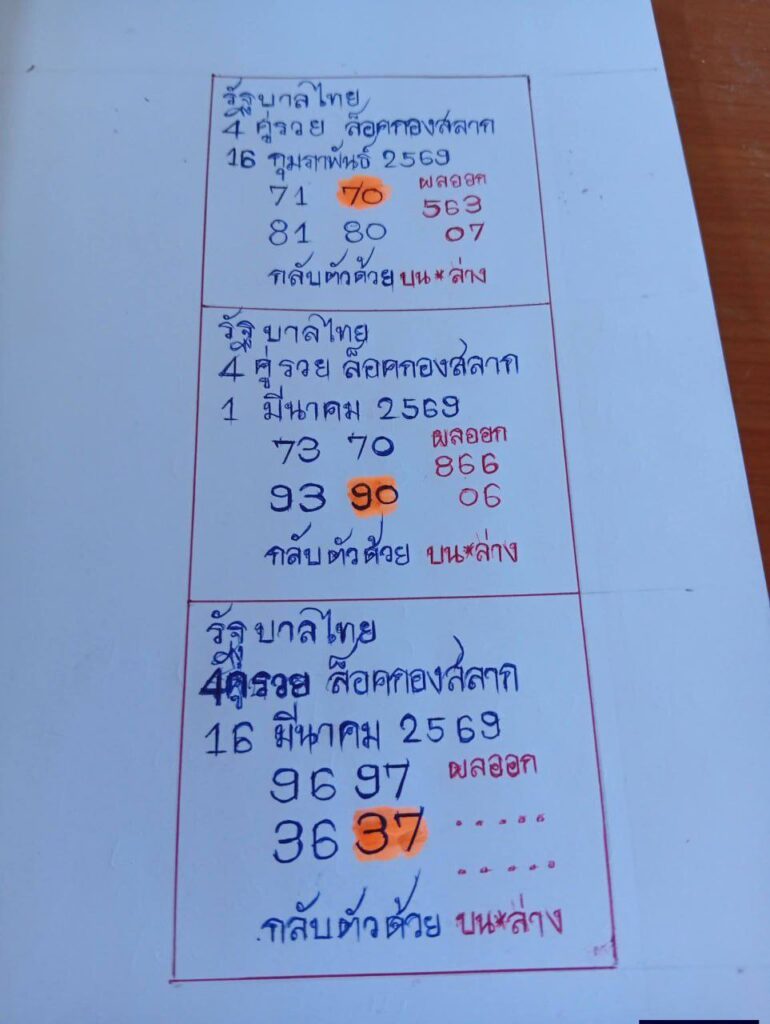 รัฐบาลไทย
4 คู่รวย ล็อคกองสลาก
16 กุมภาพันธ์ 2569
71 70 ผลออก
563
81 80 07
กลับตัวด้วย บน*ล่าง
รัฐบาลไทย
4 คู่รวย ล็อคกองสลาก
1 มีนาคม 2569
73 70 ผลออก
866
93 90 06
กลับตัวด้วย บน*ล่าง
รัฐบาลไทย
4คู่รวย ล็อคกองสลาก
16 มีนาคม 2569
96 97 ผลออก
36 37 .....
.....
กลับตัวด้วย บน*ล่าง